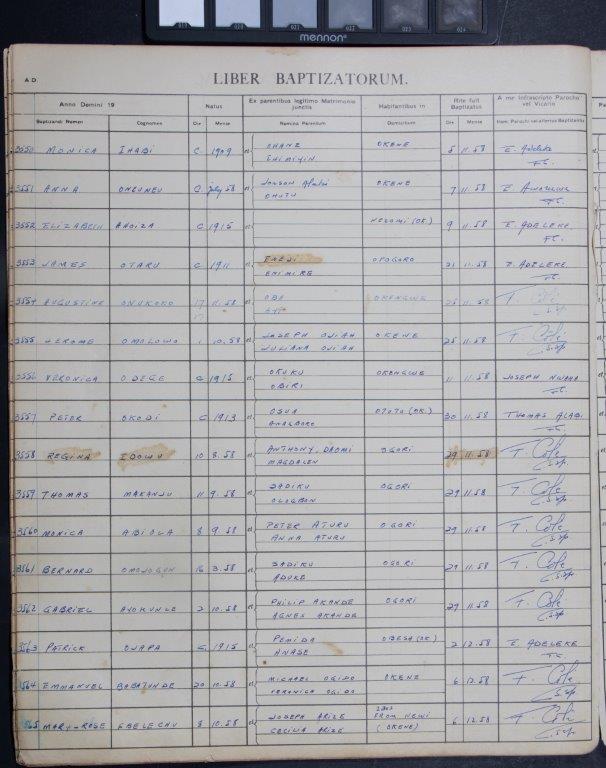 mennon
A.D.
LIBER BAPTIZATORUM.
Anno Domini 19 Natus Ex parentibus legitimo Matrimonio junctis Habitantibus in Rite fuit Baptizatus A me infrascripto Parocho vel Vicario
Baptizandi Nomen Cognomen Die Mense Nomina Parentum Domicilium Die Mense
3550 MONICA IHABI C 1909 et OHANE OKENE 5 11.58 E. Adeleke
F.C.
3551 ANNA C July 58 et JONSON OKENE 7 11.58
OMUTU F.C.
3552 ELIZABETH AHOIZA C 1915 et (OK.) 9 11.58 E. ADELEKE
F.C.
3553 JAMES OTARU C 1911 et ENEJI OPOGORO 21 11.58 E. ADELEKE
ENIMIRE F.C.
3554 AUGUSTINE ONUKOKO 17 11.58 et OBA OKENGWE 25 11.58 F. Cole
C.S.Sp.
3555 JEROME OMOLOWO 1 10.58 et JOSEPH OJIAH OKENE 25 11.58 F. Cole
JULIANA OJIAH C.S.Sp.
3556 VERONICA ODEGE C 1915 et OKUKU OKENGWE 11 11.58 JOSEPH NWAHA
OBIRI F.C.
3557 PETER OKODI C 1913 et OSUA OTUTU (OK.) 30 11.58 THOMAS ALABI
ANAGBORO F.C.
3558 REGINA IDOWU 10 8.58 et ANTHONY, DAOMI OGORI 29 11.58 F. Cole
MAGDALEN C.S.Sp.
3559 THOMAS MAKANJU 11 9.58 et SADIKU OGORI 29 11.58 F. Cole
OLOGBON C.S.Sp.
3560 MONICA ABIOLA 8 9.58 et PETER ATURU OGORI 29 11.58 F. Cole
ANNA ATURU C.S.Sp.
3561 BERNARD OMOJOGUN 16 3.58 et SADIKU OGORI 29 11.58 F. Cole
ADUKE C.S.Sp.
3562 GABRIEL AYOKUNLE 2 10.58 et PHILIP AKANDE OGORI 29 11.58 F. Cole
AGNES AKANDE C.S.Sp.
3563 PATRICK OJAPA C 1915 et PEMIDA OBESA (OK) 2 12.58 E. ADELEKE
ANASE F.C.
3564 EMMANUEL BABATUNDE 20 10.58 et MICHAEL OGIDO OKENE 6 12.58 F. Cole
VERONICA OGIDO C.S.Sp.
3565 MARY-ROSE EBELECHU 8 10.58 et JOSEPH ARIZE FROM NEWI 6 12.58 F. Cole
CECILIA ARIZE (OKENE) C.S.Sp.